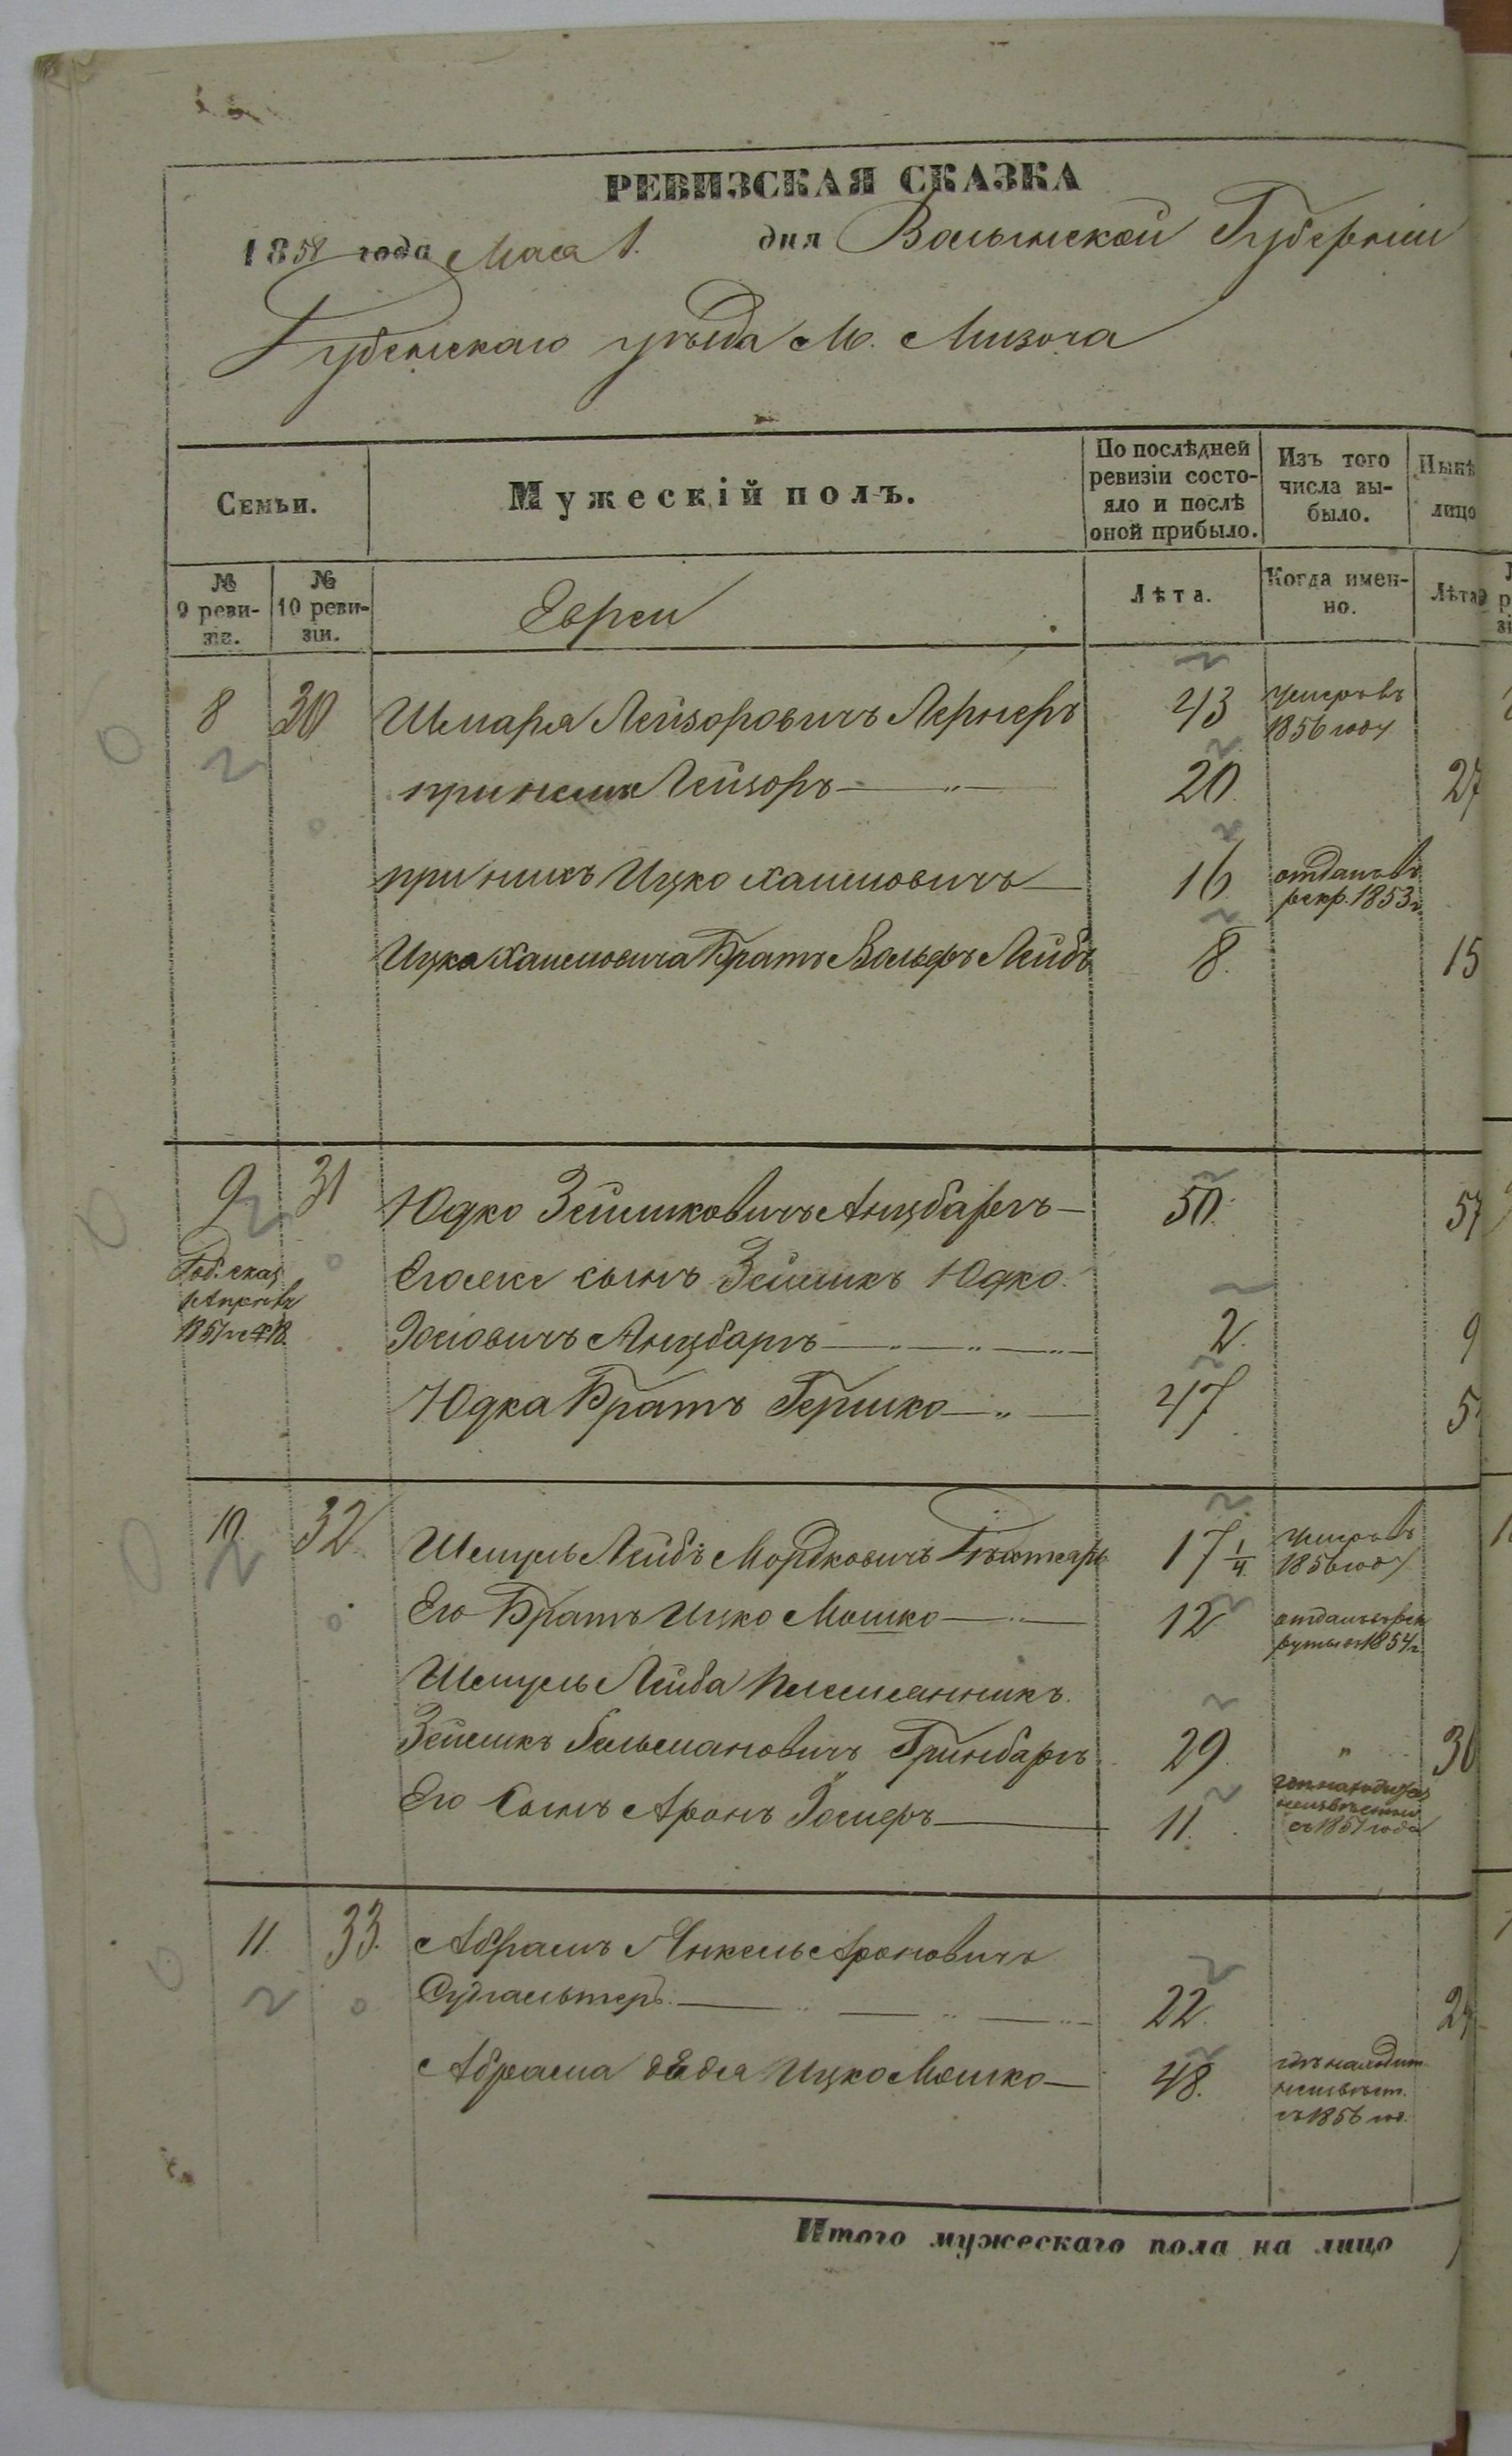 РЕВИЗСКАЯ СКАЗКА
1858 года Мая 1. дня Волынской Губерніи
Дубенскаго уѣзда М. Мизоча
Семьи.
Мужескій полъ.
По послѣдней ревизіи состо-
яло и послѣ
оной прибыло.
Изъ того
числа вы-
было.
Нынѣ
лицо
№
9 реви-
зіи.
№
10 реви-
зіи.
Евреи
Лѣта.
Когда имен-
но.
Лѣта
8 30 Шмаря Лейзоровичъ Лернеръ 43 умеръ въ
1856 году
Лейзоръ — " — 20 27
Ицко Хаимовичъ — 16 отданъ въ
рекр. 1853 г.
Ицка Хаимовича Братъ Вольфъ Лейбъ 8. 15
9 31 Юдко Зейликовичъ Анцбаргъ — 50. 57
сынъ Зейликъ Юдко
1851
Анцбаргъ — " — " — " — 2. 9
Юдка Братъ Гершко — " — 47 5
10. 32 Шмуль Лейбъ Мордковичъ 17 1/4 умеръ въ
1856 году
Его Братъ Ицко Мошко — " — 12 отданъ въ рек
руты въ 1854 г.
Шмуль Лейба племянникъ
Зейликъ Гринбаргъ 29. " 36
Его Сынъ Аронъ Іосифъ — 11. гдѣ находится
неизвѣстно
съ 1851 года
11. 33. Абрамъ Янкель Ароновичъ
— " — " — " — 22. 29
Абрама дядя Ицко Мошко — 48. гдѣ находит.
неизвѣст.
съ 1856 го.
Итого мужескаго пола на лицо